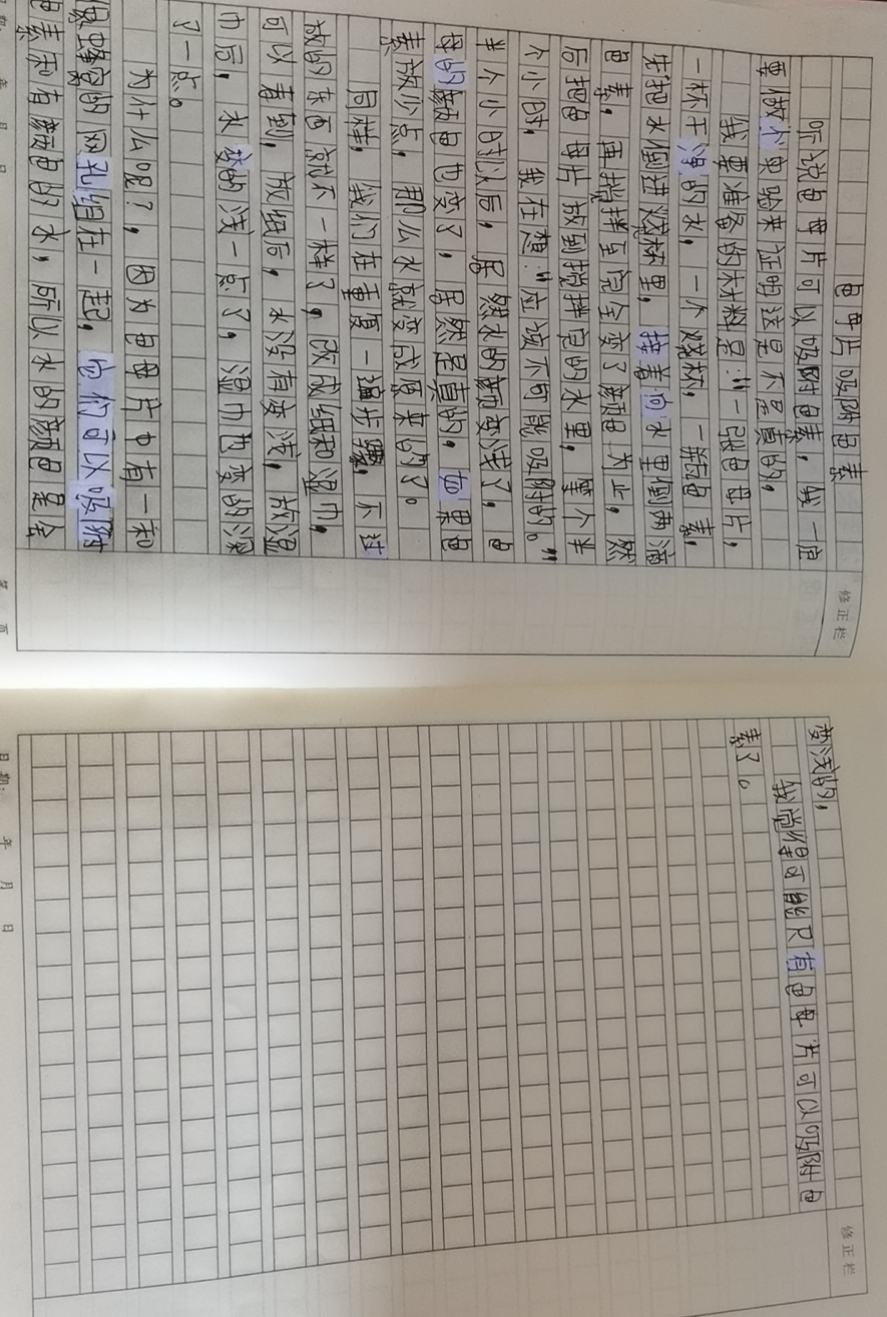 色母片吸附色素
听说色母片可以吸附色素，我一但
要做个实验来证明这是不是真的，
我要准备的材料是："一张色母片，
一杯干净的水，一个烧杯，一瓶色素，
先把水倒进烧杯里，接着向水里倒两滴
色素，再搅拌至完全变了颜色为止，然
后把色母片放到搅拌色的水里，等个半
个小时，我在想："应该不可能吸附的。"
半个小时以后，居然水的颜变浅了，色
母的颜色也变了，居然是真的，如果色
素放少点，那么水就变成原来的了。
同样，我们在重复一遍步骤，不过
放的东西就不一样了，改成纸和湿巾，
可以看到，放纸后，水没有变浅，放湿
巾后，水变的浅一点了，湿巾色变的深
了一点。
为什么呢？，因为色母片中有一和
像蜂窝的网孔组在一起，它们可以吸附
色素和有颜色的水，所以水的颜色是会
修正栏
第 页
日期： 年 月 日
变浅的，
我觉得可能只有色母片可以吸附色
素了。
修正栏
日期： 年 月 日